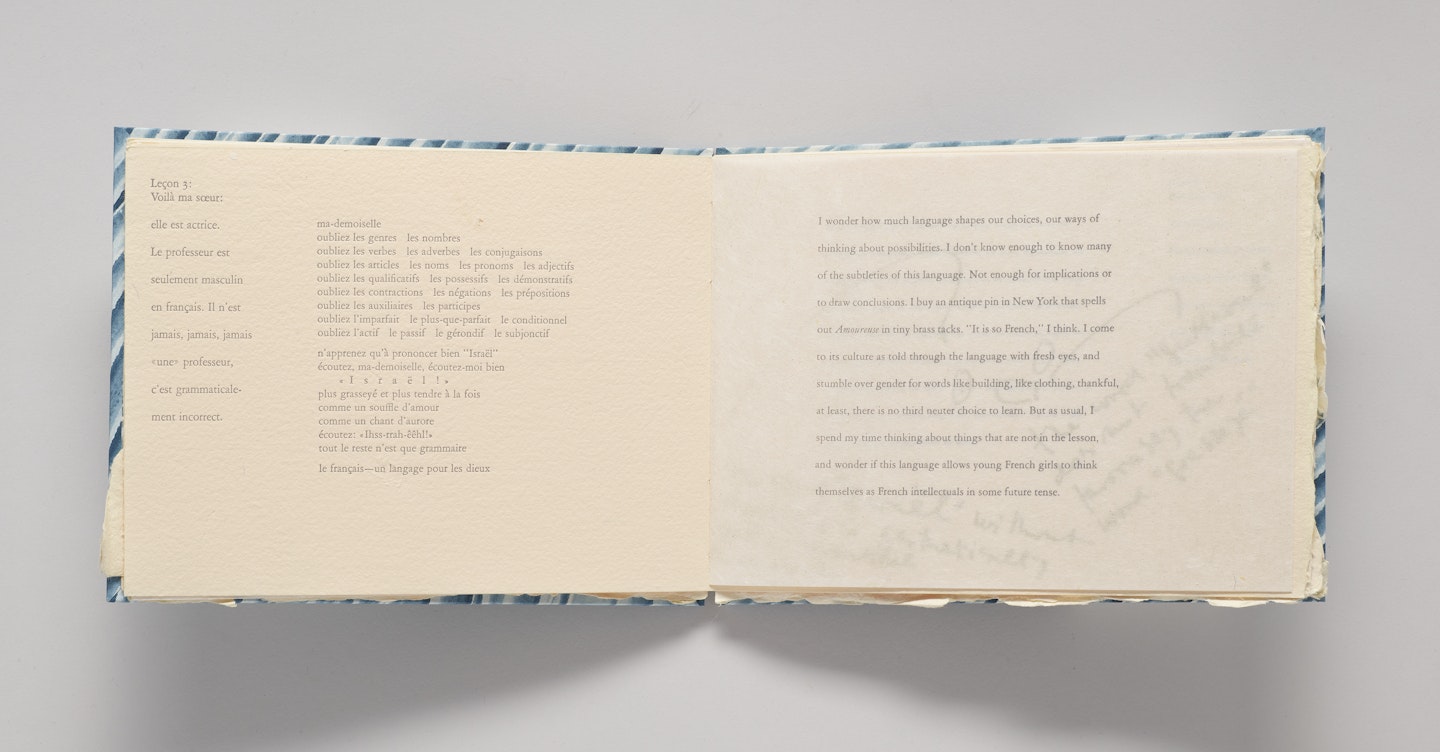 Leçon 3:
Voilà ma sœur:
elle est actrice.
Le professeur est
seulement masculin
en français. Il n'est
jamais, jamais, jamais
«une» professeur,
c'est grammaticale-
ment incorrect.
ma-demoiselle
oubliez les genres   les nombres
oubliez les verbes   les adverbes   les conjugaisons
oubliez les articles   les noms   les pronoms   les adjectifs
oubliez les qualificatifs   les possessifs   les démonstratifs
oubliez les contractions   les négations   les prépositions
oubliez les auxiliaires   les participes
oubliez l'imparfait   le plus-que-parfait   le conditionnel
oubliez l'actif   le passif   le gérondif   le subjonctif
n'apprenez qu'à prononcer bien "Israël"
écoutez, ma-demoiselle, écoutez-moi bien
« I s r a ë l ! »
plus grasseyé et plus tendre à la fois
comme un souffle d'amour
comme un chant d'aurore
écoutez: «Ihss-rrah-êêhl!»
tout le reste n'est que grammaire
le français—un langage pour les dieux
I wonder how much language shapes our choices, our ways of
thinking about possibilities. I don't know enough to know many
of the subtleties of this language. Not enough for implications or
to draw conclusions. I buy an antique pin in New York that spells
out Amoureuse in tiny brass tacks. "It is so French," I think. I come
to its culture as told through the language with fresh eyes, and
stumble over gender for words like building, like clothing, thankful,
at least, there is no third neuter choice to learn. But as usual, I
spend my time thinking about things that are not in the lesson,
and wonder if this language allows young French girls to think
themselves as French intellectuals in some future tense.